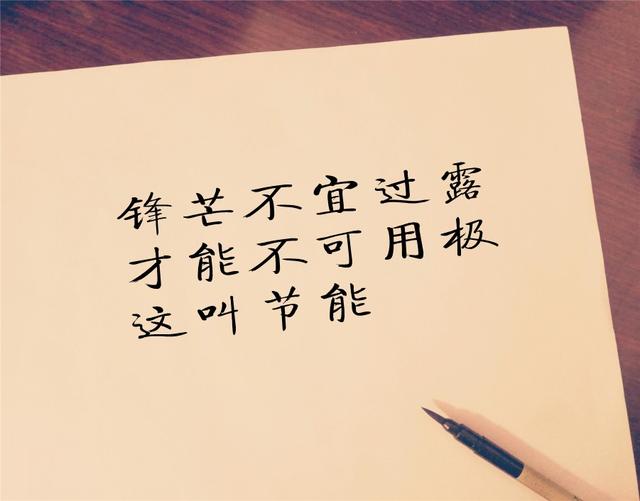 锋芒不宜过露
才能不可用极
这叫节能